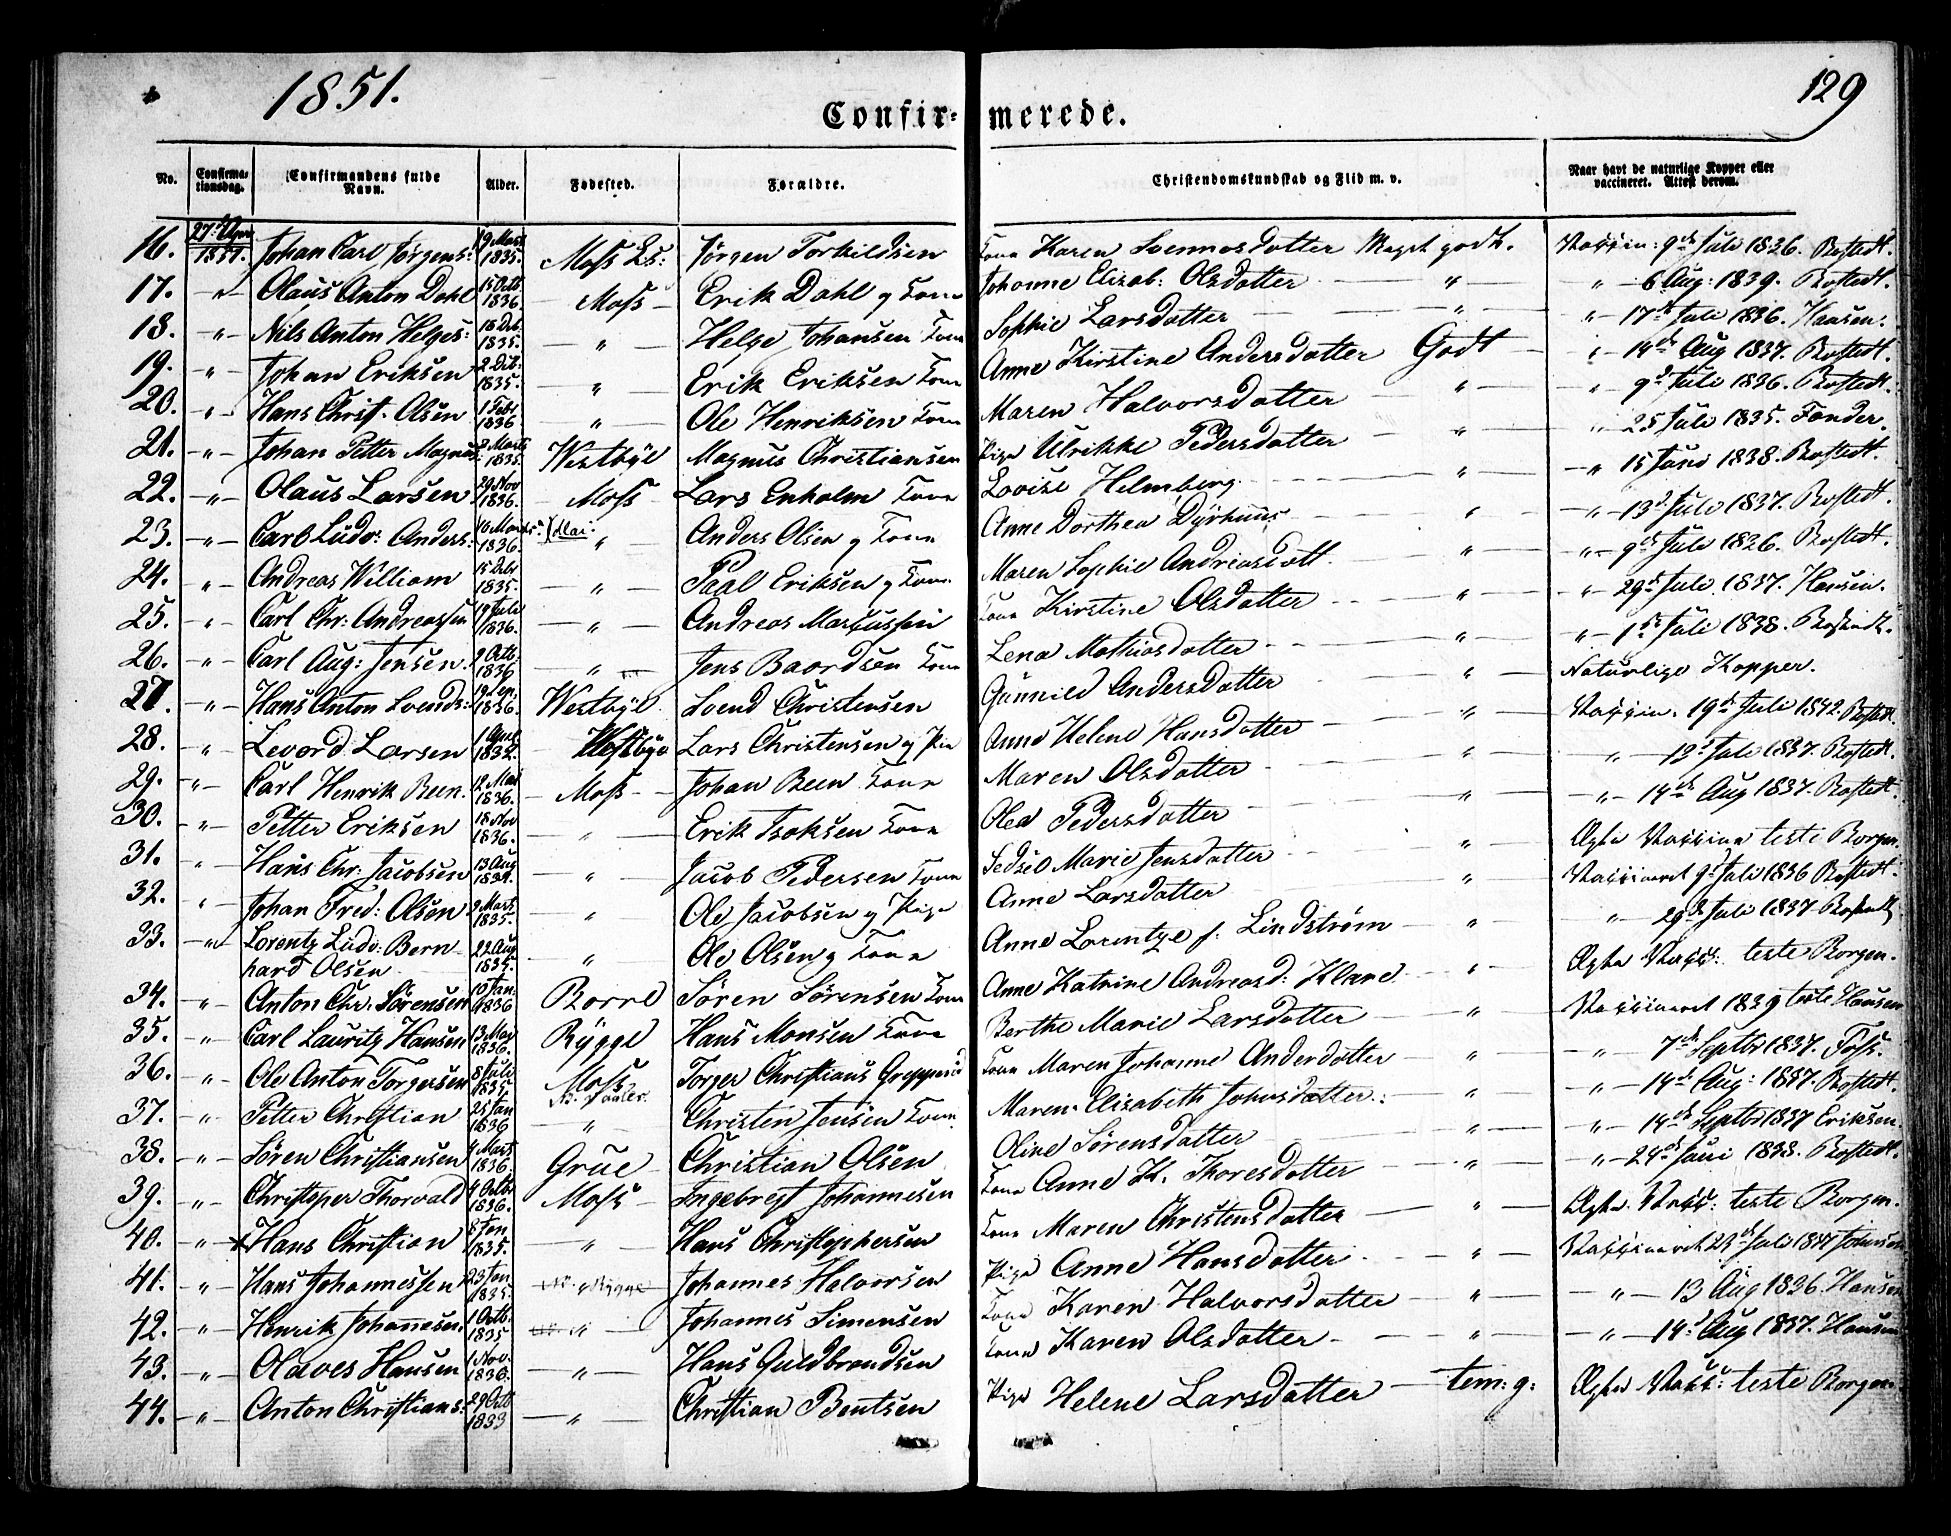 1851.
129
Confir- merede.
No. Confirmationsdag. Confirmandens fulde Navn. Alder. Fødested. Forældre. Christendomskundskab og Flid m. v. Naar havt de naturlige Kopper eller vaccineret. Attest derom.
16. 27d April 1851. Johan Carl Jørgens: 19 Mart 1835. Moss Ls: Jørgen Torkildsen Kone Karen Svennosdatter Meget godt. Vaccin: 9de Juli 1836. Bostedt.
17. -"- Olaus Anton Dahl 15 Octb 1836 — Moss — Erik Dahl og Kone Johanne Elisab: Olsdatter — " — " — 6 Aug: 1839. Bostedt.
18. -"- Nils Anton Helges: 18 Deb. 1835. — " — Helge Johansen Kone Sophie Larsdatter — " — " — 17de Juli 1836. Hansen.
19. -"- Johan Eriksen 2 Deb. 1835. — " — Erik Eriksen Kone Anne Kirstine Andersdatter Godt — " — 14de Aug 1837. Bostedt.
20. -"- Hans Christ. Olsen 1 Febr 1836. — " — Ole Henriksen Kone Maren Halvorsdatter — " — " — 9d Juli 1836. Bostedt.
21. -"- Johan Petter Magnus: 2 Marts 1835. Westbye Magnus Christiansen Pige Ulrikke Pedersdatter — " — " — 25 Juli 1835. Tønder.
22. -"- Olaus Larsen 29 Nov 1836. — Moss — Lars Enholm Kone Lovise Helmberg. — " — " — 15 Juni 1838. Bostedt.
23. -"- Carl Ludv: Anders: 1836. (Mai: " Anders Olsen og Kone Anne Dorthea Dyrhuus — " — " — 13d Juli 1837. Bostedt.
24. -"- Andreas William 15 Debr 1835. — " — Paal Eriksen og Kone Maren Sophie Andreasdatt. — " — " — 9de Juli 1836. Bostedt.
25. -"- Carl Chr: Andreassen 19 Juli 1836. — " — Andreas Marcussen Kone Kirstine Olsdatter — " — " — 29de Juli 1837. Hansen.
26. -"- Carl Aug: Jensen. 9 Octb. 1836 — " — Jens Baardsen Kone Lena Mathiasdatter — " — " — 1ste Juli 1838. Bostedt.
27. -"- Hans Anton Svends: 19 Sep. 1836. Westbye. Svend Christensen Gunnild Andersdatter — " — Naturlige Kopper.
28. -"- Levord Larsen Westbye Lars Christensen og Pie Anne Helene Hansdatter — " — Vaccin. 19de Juli 1842. Bostedt
29. -"- Carl Henrik Been. 12 Mai 1836. — Moss — Johan Been Kone Maren Olsdatter — " — " — 12d Juli 1837. Bostedt.
30. -"- Petter Eriksen 18 Nov 1836. — " — Erik Isaksen Kone Olea Pedersdatter — " — " — 14de Aug 1837. Bostedt.
31. -"- Hans Chr: Jacobsen 13 Aug 1834. — " — Jacob Pedersen Kone Sedsel Marie Jensdatter — " — Ægte Vaccine teste Borgen.
32. -"- Johan Fred: Olsen 9 Mart 1835. — " — Ole Jacobsen og Pige Anne Larsdatter — " — Vaccineret 9d Juli 1836 Bostedt.
33. -"- Lorentz Ludv: Bernhard Olsen 22 Aug 1835. " Ole Olsen og Kone Anne Lorentze f. Lindstrøm — " — " — 29de Juli 1837
34. -"- Anton Chr. Sørensen 10 Jan. 1836 Borre Søren Sørensen Kone Anne Katrine Andreasd: Klave — " — Ægte Vacc: teste Borgen.
35. -"- Carl Lauritz Hansen 13 May 1836. Rygge Hans Monsen Kone Berthe Marie Larsdatter — " — Vaccineret 1839 teste Hansen
36. -"- Ole Anton Torgersen 8 Juli 1835 Moss Torger Christians Kone Maren Johanne Anderdatter — " — " — 7de Septbr 1837. Foss.
37. -"- Petter Christian 25 Jan 1836 " Christen Jensen Kone Maren Elizabeth Johnsdatter. — " — " — 14de Aug: 1837. Bostedt.
38. -"- Søren Christiansen 4 Mart 1836. Grue Christian Olsen Oline Sørensdatter — " — " — 14de Septbr 1837 Eriksen.
39. -"- Christoper Thorvald 4 Octbr 1836. Moss — Ingebregt Johannesen Kone Anne K. Thoresdatter — " — " — 24de Juni 1838. Bostedt.
40. -"- Hans Christian 8 Jan 1835. — " — Hans Christophersen Kone Maren Christensdatter — " — Ægte Vacc: teste Borgen.
41. -"- Hans Johannessen 23 Jan. 1835. Rygge Johannes Halvorsen Pige Anne Hansdatter — " — Vaccineret 23de Juli 1837
42. -"- Henrik Johannesen. 1 Octb. 1835 — Johannes Simensen Kone Karen Halvorsdatter — " — " — 13 Aug 1836. Hansen
43. -"- Olaves Hansen 1 Nov. 1836. — " — Hans Guldbrandsen Kone Karen Olsdatter — " — " — 14d Aug 1837. Hansen
44. -"- Anton Christians: 29 Octb 1833 — " — Christian Bentsen Pige Helene Larsdatter — tem: g: Ægte Vacc: teste Borgen